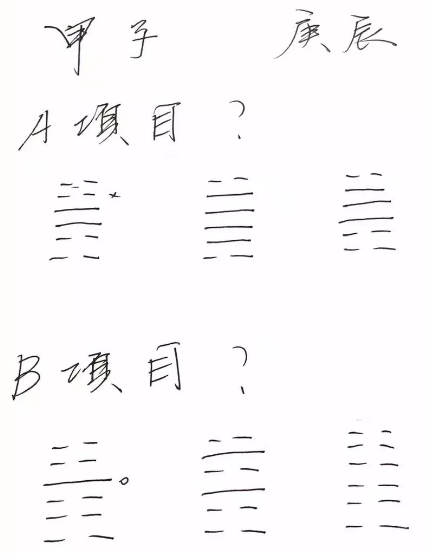 甲子 庚辰
A 項目?
B 項目?